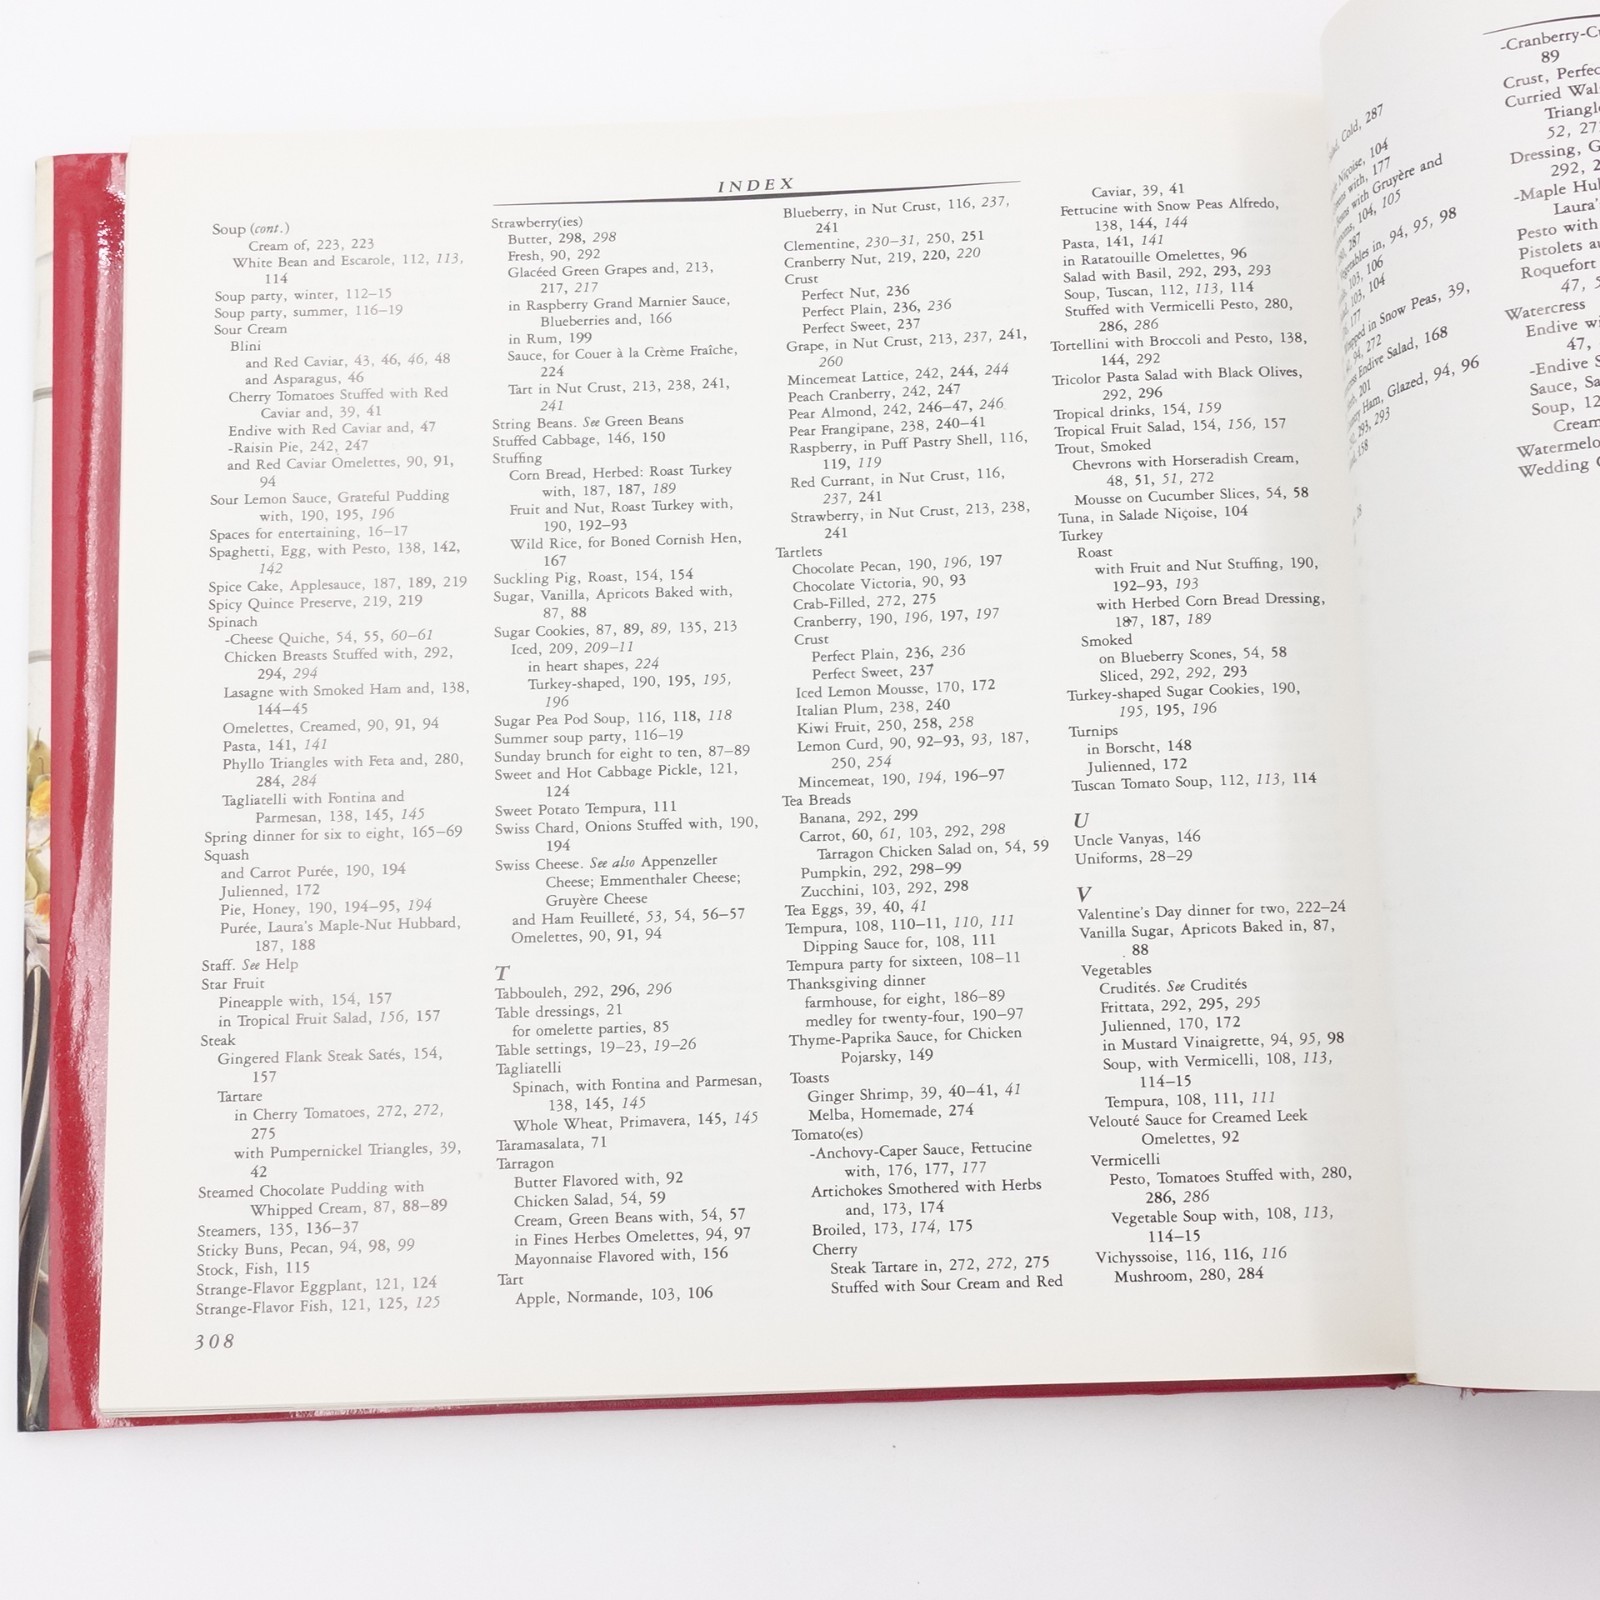 INDEX
Soup (cont.)
Cream of, 223, 223
White Bean and Escarole, 112, 113,
114
Soup party, winter, 112–15
Soup party, summer, 116–19
Sour Cream
Blini
and Red Caviar, 43, 46, 46, 48
and Asparagus, 46
Cherry Tomatoes Stuffed with Red
Caviar and, 39, 41
Endive with Red Caviar and, 47
-Raisin Pie, 242, 247
and Red Caviar Omelettes, 90, 91,
94
Sour Lemon Sauce, Grateful Pudding
with, 190, 195, 196
Spaces for entertaining, 16–17
Spaghetti, Egg, with Pesto, 138, 142,
142
Spice Cake, Applesauce, 187, 189, 219
Spicy Quince Preserve, 219, 219
Spinach
-Cheese Quiche, 54, 55, 60–61
Chicken Breasts Stuffed with, 292,
294, 294
Lasagne with Smoked Ham and, 138,
144–45
Omelettes, Creamed, 90, 91, 94
Pasta, 141, 141
Phyllo Triangles with Feta and, 280,
284, 284
Tagliatelli with Fontina and
Parmesan, 138, 145, 145
Spring dinner for six to eight, 165–69
Squash
and Carrot Purée, 190, 194
Julienned, 172
Pie, Honey, 190, 194–95, 194
Purée, Laura's Maple-Nut Hubbard,
187, 188
Staff. See Help
Star Fruit
Pineapple with, 154, 157
in Tropical Fruit Salad, 156, 157
Steak
Gingered Flank Steak Satés, 154,
157
Tartare
in Cherry Tomatoes, 272, 272,
275
with Pumpernickel Triangles, 39,
42
Steamed Chocolate Pudding with
Whipped Cream, 87, 88–89
Steamers, 135, 136–37
Sticky Buns, Pecan, 94, 98, 99
Stock, Fish, 115
Strange-Flavor Eggplant, 121, 124
Strange-Flavor Fish, 121, 125, 125
308
Strawberry(ies)
Butter, 298, 298
Fresh, 90, 292
Glacéed Green Grapes and, 213,
217, 217
in Raspberry Grand Marnier Sauce,
Blueberries and, 166
in Rum, 199
Sauce, for Couer à la Crème Fraîche,
224
Tart in Nut Crust, 213, 238, 241,
241
String Beans. See Green Beans
Stuffed Cabbage, 146, 150
Stuffing
Corn Bread, Herbed: Roast Turkey
with, 187, 187, 189
Fruit and Nut, Roast Turkey with,
190, 192–93
Wild Rice, for Boned Cornish Hen,
167
Suckling Pig, Roast, 154, 154
Sugar, Vanilla, Apricots Baked with,
87, 88
Sugar Cookies, 87, 89, 89, 135, 213
Iced, 209, 209–11
in heart shapes, 224
Turkey-shaped, 190, 195, 195,
196
Sugar Pea Pod Soup, 116, 118, 118
Summer soup party, 116–19
Sunday brunch for eight to ten, 87–89
Sweet and Hot Cabbage Pickle, 121,
124
Sweet Potato Tempura, 111
Swiss Chard, Onions Stuffed with, 190,
194
Swiss Cheese. See also Appenzeller
Cheese; Emmenthaler Cheese;
Gruyère Cheese
and Ham Feuilleté, 53, 54, 56–57
Omelettes, 90, 91, 94
T
Tabbouleh, 292, 296, 296
Table dressings, 21
for omelette parties, 85
Table settings, 19–23, 19–26
Tagliatelli
Spinach, with Fontina and Parmesan,
138, 145, 145
Whole Wheat, Primavera, 145, 145
Taramasalata, 71
Tarragon
Butter Flavored with, 92
Chicken Salad, 54, 59
Cream, Green Beans with, 54, 57
in Fines Herbes Omelettes, 94, 97
Mayonnaise Flavored with, 156
Tart
Apple, Normande, 103, 106
Blueberry, in Nut Crust, 116, 237,
241
Clementine, 230–31, 250, 251
Cranberry Nut, 219, 220, 220
Crust
Perfect Nut, 236
Perfect Plain, 236, 236
Perfect Sweet, 237
Grape, in Nut Crust, 213, 237, 241,
260
Mincemeat Lattice, 242, 244, 244
Peach Cranberry, 242, 247
Pear Almond, 242, 246–47, 246
Pear Frangipane, 238, 240–41
Raspberry, in Puff Pastry Shell, 116,
119, 119
Red Currant, in Nut Crust, 116,
237, 241
Strawberry, in Nut Crust, 213, 238,
241
Tartlets
Chocolate Pecan, 190, 196, 197
Chocolate Victoria, 90, 93
Crab-Filled, 272, 275
Cranberry, 190, 196, 197, 197
Crust
Perfect Plain, 236, 236
Perfect Sweet, 237
Iced Lemon Mousse, 170, 172
Italian Plum, 238, 240
Kiwi Fruit, 250, 258, 258
Lemon Curd, 90, 92–93, 93, 187,
250, 254
Mincemeat, 190, 194, 196–97
Tea Breads
Banana, 292, 299
Carrot, 60, 61, 103, 292, 298
Tarragon Chicken Salad on, 54, 59
Pumpkin, 292, 298–99
Zucchini, 103, 292, 298
Tea Eggs, 39, 40, 41
Tempura, 108, 110–11, 110, 111
Dipping Sauce for, 108, 111
Tempura party for sixteen, 108–11
Thanksgiving dinner
farmhouse, for eight, 186–89
medley for twenty-four, 190–97
Thyme-Paprika Sauce, for Chicken
Pojarsky, 149
Toasts
Ginger Shrimp, 39, 40–41, 41
Melba, Homemade, 274
Tomato(es)
-Anchovy-Caper Sauce, Fettucine
with, 176, 177, 177
Artichokes Smothered with Herbs
and, 173, 174
Broiled, 173, 174, 175
Cherry
Steak Tartare in, 272, 272, 275
Stuffed with Sour Cream and Red
Caviar, 39, 41
Fettucine with Snow Peas Alfredo,
138, 144, 144
Pasta, 141, 141
in Ratatouille Omelettes, 96
Salad with Basil, 292, 293, 293
Soup, Tuscan, 112, 113, 114
Stuffed with Vermicelli Pesto, 280,
286, 286
Tortellini with Broccoli and Pesto, 138,
144, 292
Tricolor Pasta Salad with Black Olives,
292, 296
Tropical drinks, 154, 159
Tropical Fruit Salad, 154, 156, 157
Trout, Smoked
Chevrons with Horseradish Cream,
48, 51, 51, 272
Mousse on Cucumber Slices, 54, 58
Tuna, in Salade Niçoise, 104
Turkey
Roast
with Fruit and Nut Stuffing, 190,
192–93, 193
with Herbed Corn Bread Dressing,
187, 187, 189
Smoked
on Blueberry Scones, 54, 58
Sliced, 292, 292, 293
Turkey-shaped Sugar Cookies, 190,
195, 195, 196
Turnips
in Borscht, 148
Julienned, 172
Tuscan Tomato Soup, 112, 113, 114
U
Uncle Vanyas, 146
Uniforms, 28–29
V
Valentine's Day dinner for two, 222–24
Vanilla Sugar, Apricots Baked in, 87,
88
Vegetables
Crudités. See Crudités
Frittata, 292, 295, 295
Julienned, 170, 172
in Mustard Vinaigrette, 94, 95, 98
Soup, with Vermicelli, 108, 113,
114–15
Tempura, 108, 111, 111
Velouté Sauce for Creamed Leek
Omelettes, 92
Vermicelli
Pesto, Tomatoes Stuffed with, 280,
286, 286
Vegetable Soup with, 108, 113,
114–15
Vichyssoise, 116, 116, 116
Mushroom, 280, 284
Cold, 287
Niçoise, 104
with, 177
with Gruyère and
104, 105
287
in, 94, 95, 98
103, 106
103, 104
177
in Snow Peas, 39,
94, 272
Endive Salad, 168
201
Ham, Glazed, 94, 96
293, 293
158
-Cranberry-
89
Crust,
Curried
52,
Dressing,
292,
-Maple
Laura'
Pesto with
Pistolets
Roquefort
47,
Watercress
Endive
47,
-Endive
Sauce,
Soup,
Cream
Wedding